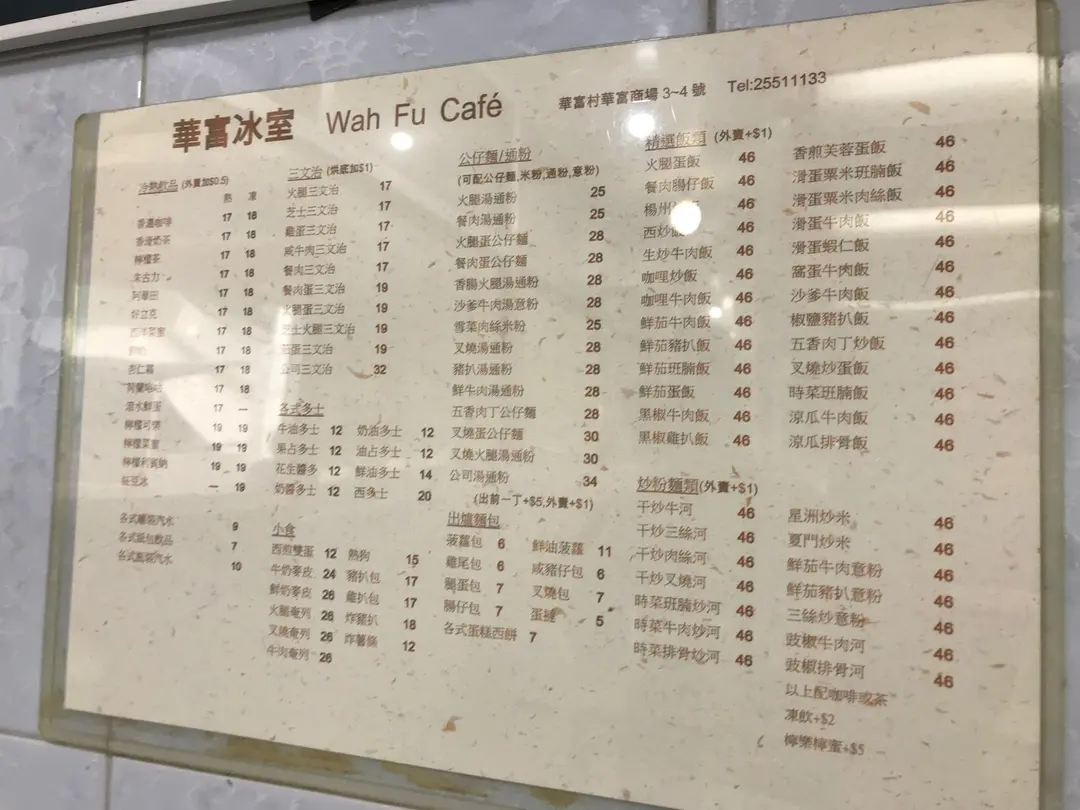 華富冰室 Wah Fu Café 華富村華富商場 3~4 號 Tel:25511133
冷熱飲品 (外賣加$0.5)
熱 凍
香濃咖啡 17 18
香滑奶茶 17 18
檸檬茶 17 18
朱古力 17 18
阿華田 17 18
好立克 17 18
西洋菜蜜 17 18
17 18
杏仁霜 17 18
17 18
滾水鮮蛋 17 —
檸檬可樂 19 19
檸檬菜蜜 19 19
檸檬利賓納 19 19
紅豆冰 — 19
各式罐裝汽水 9
各式紙包飲品 7
各式瓶裝汽水 10
三文治 (烘底加$1)
火腿三文治 17
芝士三文治 17
雞蛋三文治 17
咸牛肉三文治 17
餐肉三文治 17
餐肉蛋三文治 19
火腿蛋三文治 19
芝士火腿三文治 19
茄蛋三文治 19
公司三文治 32
各式多士
牛油多士 12 奶油多士 12
果占多士 12 油占多士 12
花生醬多 12 鮮油多士 14
奶醬多士 12 西多士 20
小食
西煎雙蛋 12 熱狗 15
牛奶麥皮 24 豬扒包 17
鮮奶麥皮 26 雞扒包 17
火腿奄列 26 炸豬扒 18
叉燒奄列 26 炸薯條 12
牛肉奄列 26
公仔麵/通粉
(可配公仔麵,米粉,通粉,意粉)
火腿湯通粉 25
餐肉湯通粉 25
火腿蛋公仔麵 28
餐肉蛋公仔麵 28
香腸火腿湯通粉 28
沙爹牛肉湯意粉 28
雪菜肉絲米粉 25
叉燒湯通粉 28
豬扒湯通粉 28
鮮牛肉湯通粉 28
五香肉丁公仔麵 28
叉燒蛋公仔麵 30
叉燒火腿湯通粉 30
公司湯通粉 34
(出前一丁+$5,外賣+$1)
出爐麵包
菠蘿包 6 鮮油菠蘿 11
雞尾包 6 咸豬仔包 6
腿蛋包 7 叉燒包 7
腸仔包 7 蛋撻 5
各式蛋糕西餅 7
精選飯類 (外賣+$1)
火腿蛋飯 46
餐肉腸仔飯 46
楊州 46
西炒飯 46
生炒牛肉飯 46
咖哩炒飯 46
咖哩牛肉飯 46
鮮茄牛肉飯 46
鮮茄豬扒飯 46
鮮茄班腩飯 46
鮮茄蛋飯 46
黑椒牛肉飯 46
黑椒雞扒飯 46
香煎芙蓉蛋飯 46
滑蛋粟米班腩飯 46
滑蛋粟米肉絲飯 46
滑蛋牛肉飯 46
滑蛋蝦仁飯 46
窩蛋牛肉飯 46
沙爹牛肉飯 46
椒鹽豬扒飯 46
五香肉丁炒飯 46
叉燒炒蛋飯 46
時菜班腩飯 46
涼瓜牛肉飯 46
涼瓜排骨飯 46
炒粉麵類(外賣+$1)
干炒牛河 46
干炒三絲河 46
干炒肉絲河 46
干炒叉燒河 46
時菜班腩炒河 46
時菜牛肉炒河 46
時菜排骨炒河 46
星洲炒米 46
夏門炒米 46
鮮茄牛肉意粉 46
鮮茄豬扒意粉 46
三絲炒意粉 46
豉椒牛肉河 46
豉椒排骨河 46
以上配咖啡或茶
凍飲+$2
檸樂檸蜜+$5